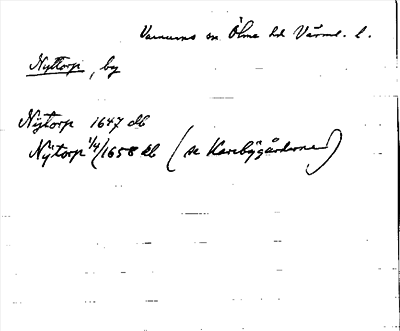 Varnums sn Ölme hd Värml. l.
Nyttorp, by
Nytorp 1647 db
Nÿtorp 1/4/1658 db (se Karebÿgårderna)